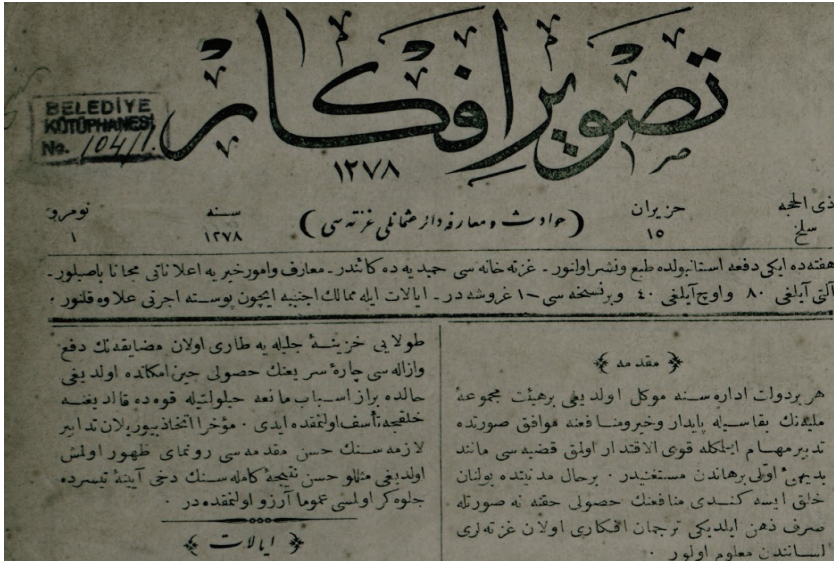 تصوير افكار
BELEDİYE
KÜTÜPHANESİ
No. 104/1.
١٢٧٨
ذى الحجه
سلخ
حزيران
١٥
(حوادث و معارفه دائر عثمانلى غزته سى)
سنه
١٢٧٨
نومرو
١
هفته ده ايكى دفعه استانبولده طبع ونشر اولنور ـ غزته خانه سى حميديه ده كائندر ـ معارف وامور خيريه اعلاناتى مجانا باصيلور ـ
آلتى آيلغى ٨٠ واوچ آيلغى ٤٠ وبر نسخه سى ـ ١ غروشه در ـ ايالات ايله ممالك اجنبيه ايچون پوسته اجرتى علاوه قلنور ٠
مقدمه
هر بر دولت اداره سنه موكل اولديغى برهيئت مجموعۀ
مليه نك بقاسيله پايدار وخير ومنافعنه موافق صورتده
تدبير مهام ايلمكله قوى الاقتدار اولمق قضيه سى مانند
بديهئ اولى برهاندن مستغنيدر ٠ برحال مدنيتده بولنان
خلق ايسه كندى منافعنك حصولى حقنه نه صورتله
صرف ذهن ايلديكى ترجمان افكارى اولان غزته لرى
لسانندن معلوم اولور ٠
طولايى خزينۀ جليله يه طارى اولان مضايقه نك دفع
وازاله سى چارۀ سريعنك حصولى حين امكانده اولديغى
حالده براز اسباب مانعه حيلولتيله قوه ده قالديغنه
خلقجه تأسف اولنمقده ايدى ٠ مؤخرا اتخاذ بيوريلان تدابير
لازمه سنك حسن مقدمه سى رونماى ظهور اولمش
اولديغى مثللو حسن نتيجۀ كامله سنك دخى آيينۀ تيسرده
جلوه كر اولمسى عموما آرزو اولنمقده در ٠
ايالات